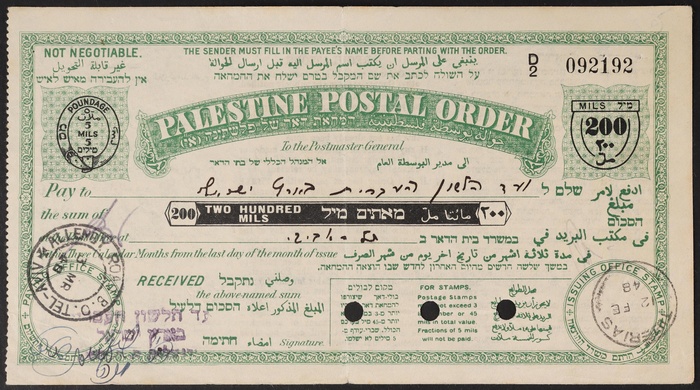 NOT NEGOTIABLE.
غير قابلة التحويل
אין להעבירה מאיש לאיש
THE SENDER MUST FILL IN THE PAYEE'S NAME BEFORE PARTING WITH THE ORDER.
ينبغي على المرسل ان يكتب اسم المرسل اليه قبل ارسال الحوالة
על השולח לכתב את שם המקבל בטרם ישלח את ההמחאה.
D/2 092192
POUNDAGE
5
MILS
5
מילים
PALESTINE POSTAL ORDER
המחאת דאר של פלשתינה (א״י) حوالة بوسطة فلسطينية
MILS מיל
200
٢٠٠
مل
To the Postmaster General
אל המנהל הכללי של בתי הדאר الى مدير البوسطة العام
Pay to ועד הלשון העברית בארץ ישראל שלם ל ادفع لامر
the sum of مبلغ
הסכום
200 TWO HUNDRED MILS מאתים מיל مائتا مل ٢٠٠
at תל-אביב במשרד בית הדאר ב في مكتب البريد في
Months from the last day of the month of issue في مدة ثلاثة اشهر من تاريخ آخر يوم من شهر الصرف
במשך שלשה חדשים מהיום האחרון לחדש שבו הוצאה ההמחאה.
RECEIVED נתקבל وصلني
the above-named sum
المبلغ المذكور اعلاه הסכום הנ״ל
Signature امضاء חתימה
מקום לבולים
FOR STAMPS.
Postage Stamps
not exceed 3
number or 45
mils in total value
Fractions of 5 mils
will not be paid.
ALLENBY RD
B.O. TEL-AVIV
MR
ועד הלשון
ISSUING OFFICE STAMP
TIBERIAS
12 FE
48